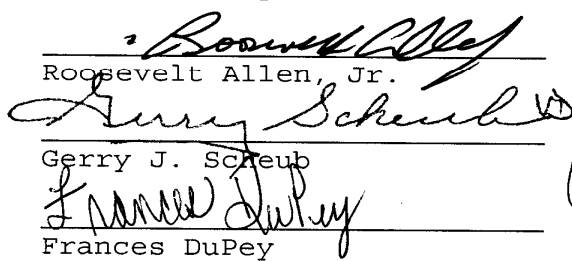 Roosevelt Allen
Roosevelt Allen, Jr.
Gerry Scheub
Gerry J. Scheub
Frances DuPey
Frances DuPey